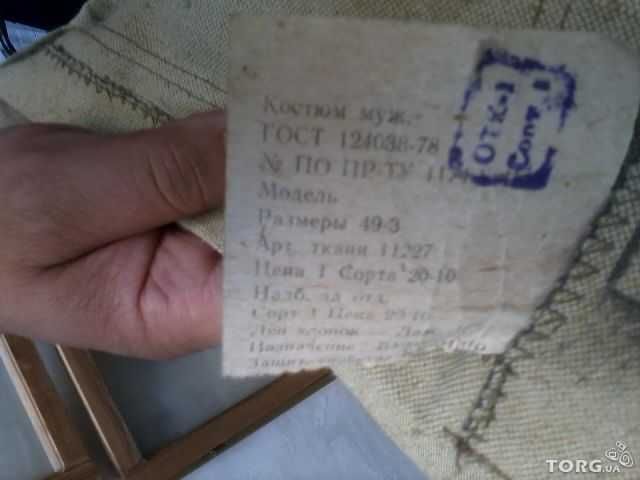 Костюм муж.-
ГОСТ 124038-78
№ ПО ПР-ТУ
Модель
Размеры 49-3
Арт. ткани 11227
Цена 1 Сорта 20-10
Надб. за отд.
Сорт 1 Цена 20-10
Лен хлопок — Лав
Назначение
ОТК-1
Сорт 1
TORG.UA